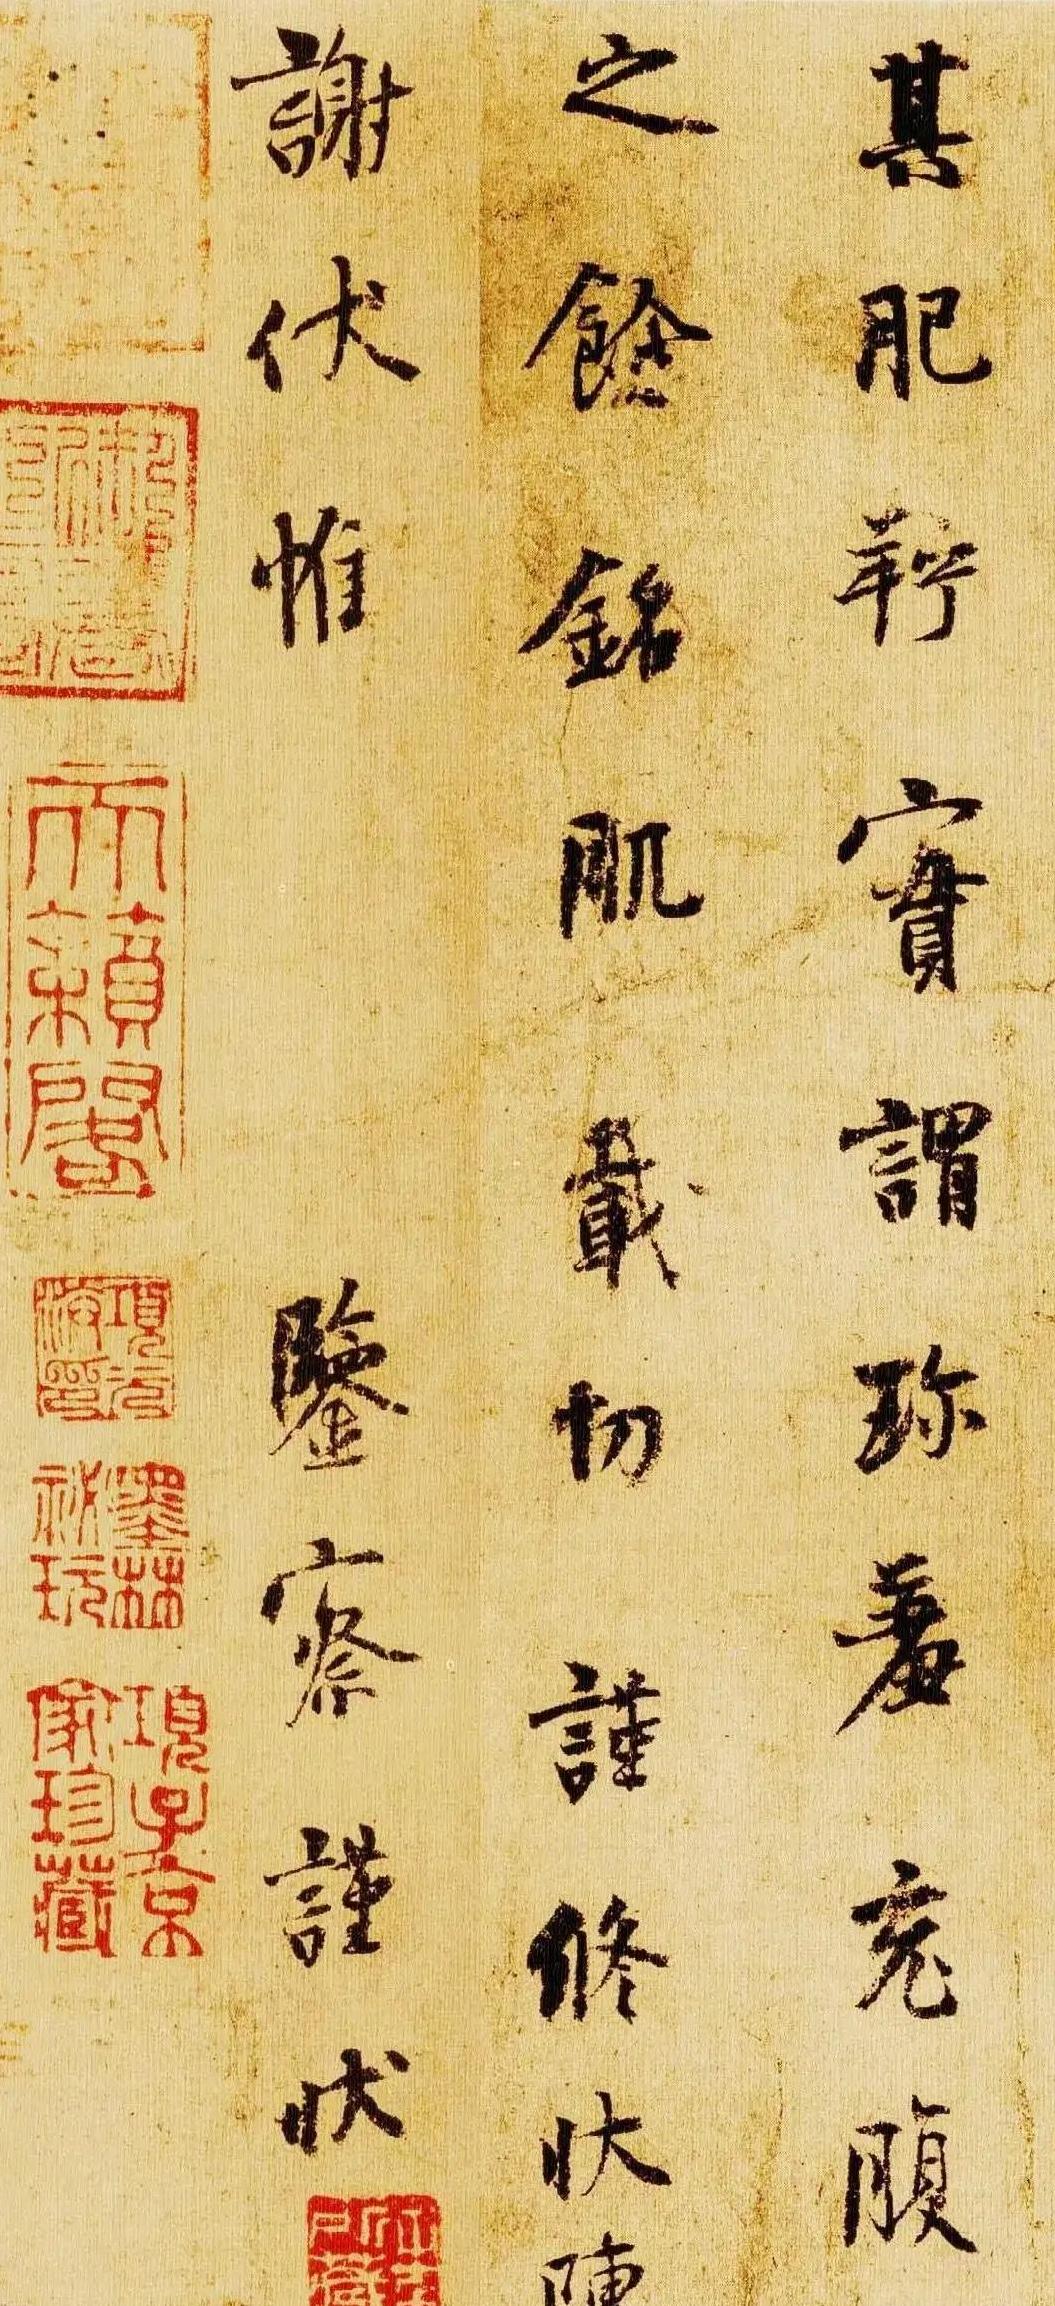 其肥羜實謂珎羞充腹
之餘銘肌載切謹脩状陳
謝伏惟
鑒察謹状
天籟閣
項元汴印
墨林祕玩
項子京家珍藏